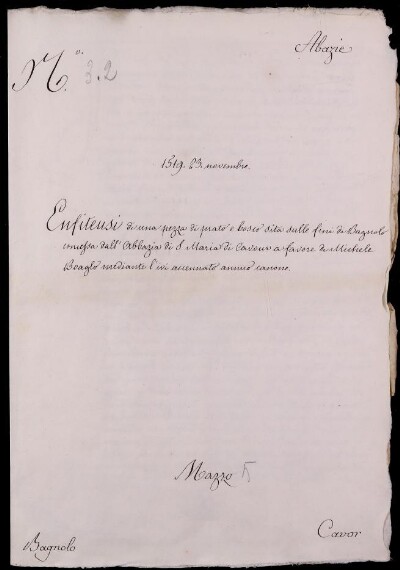 Abazie
N.º 3.2
1519. 23. novembre
Enfiteusi di una pezza di prato e bosco sita sulle fini di Bagnolo
concessa dall'Abbazia di S. Maria di Cavour a favore di Michele
Beaglo mediante l'ivi accennato annuo canone.
Mazzo
Bagnolo
Cavor